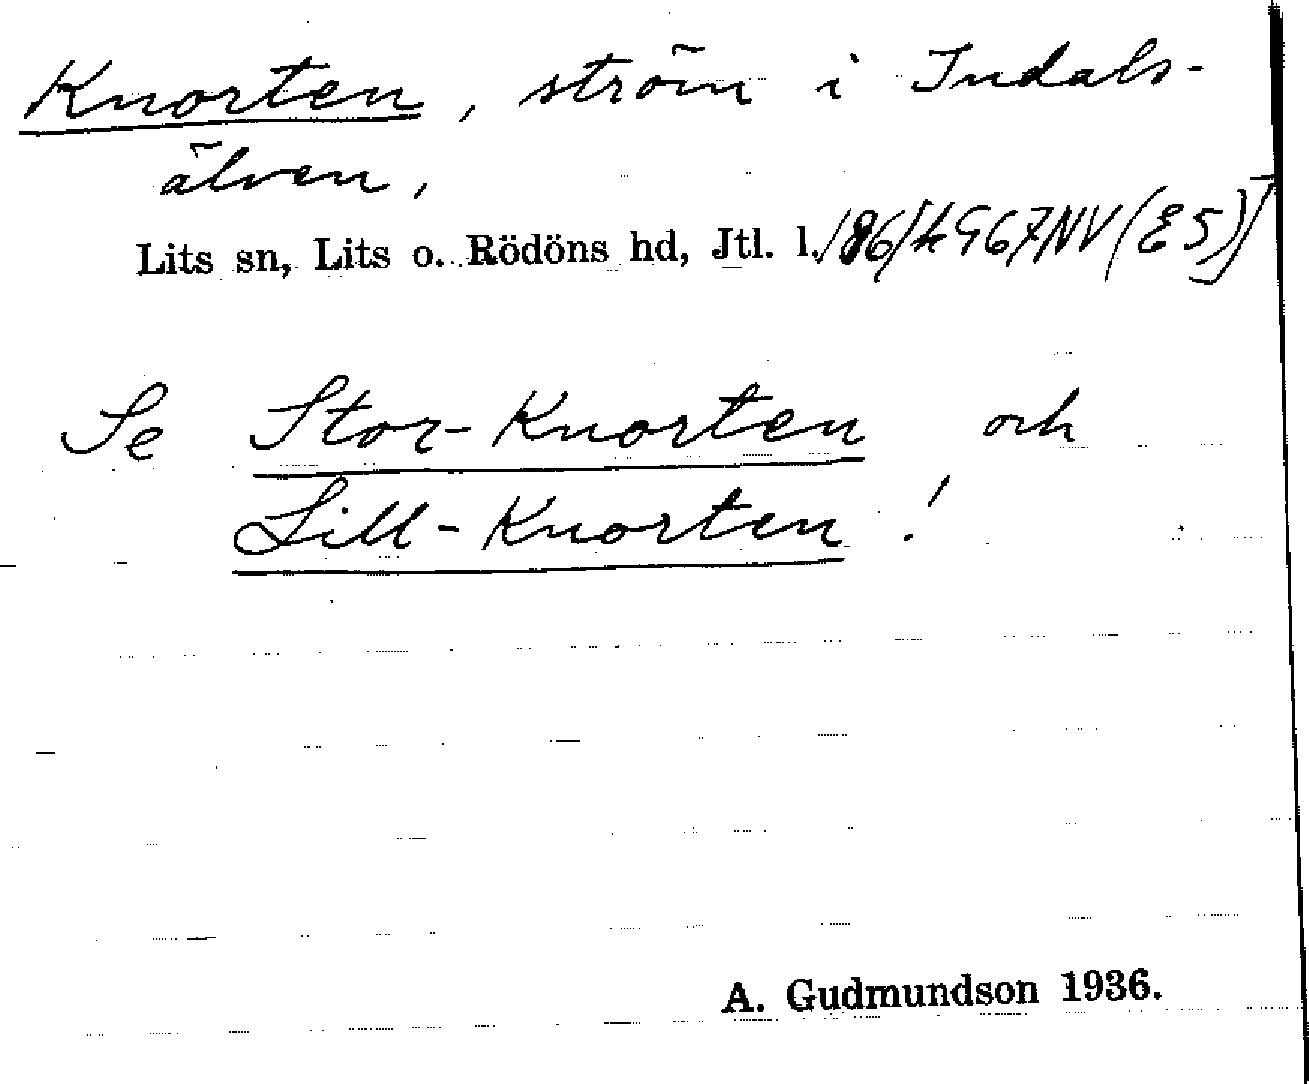 Knorten, ström i Indals-
älven,
Lits sn, Lits o. Rödöns hd, Jtl. l. (E5)
Se Stor-Knorten och
Lill-Knorten!
A. Gudmundson 1936.